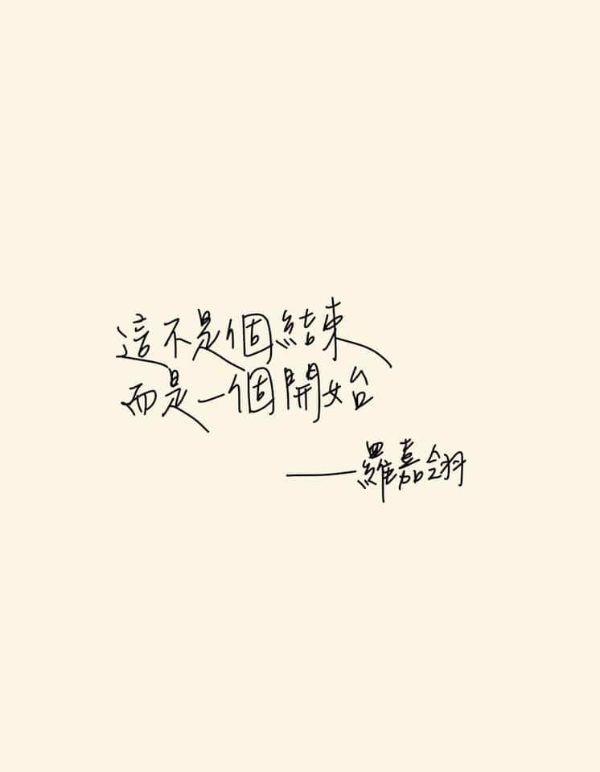 這不是個結束
而是一個開始
——羅嘉翎